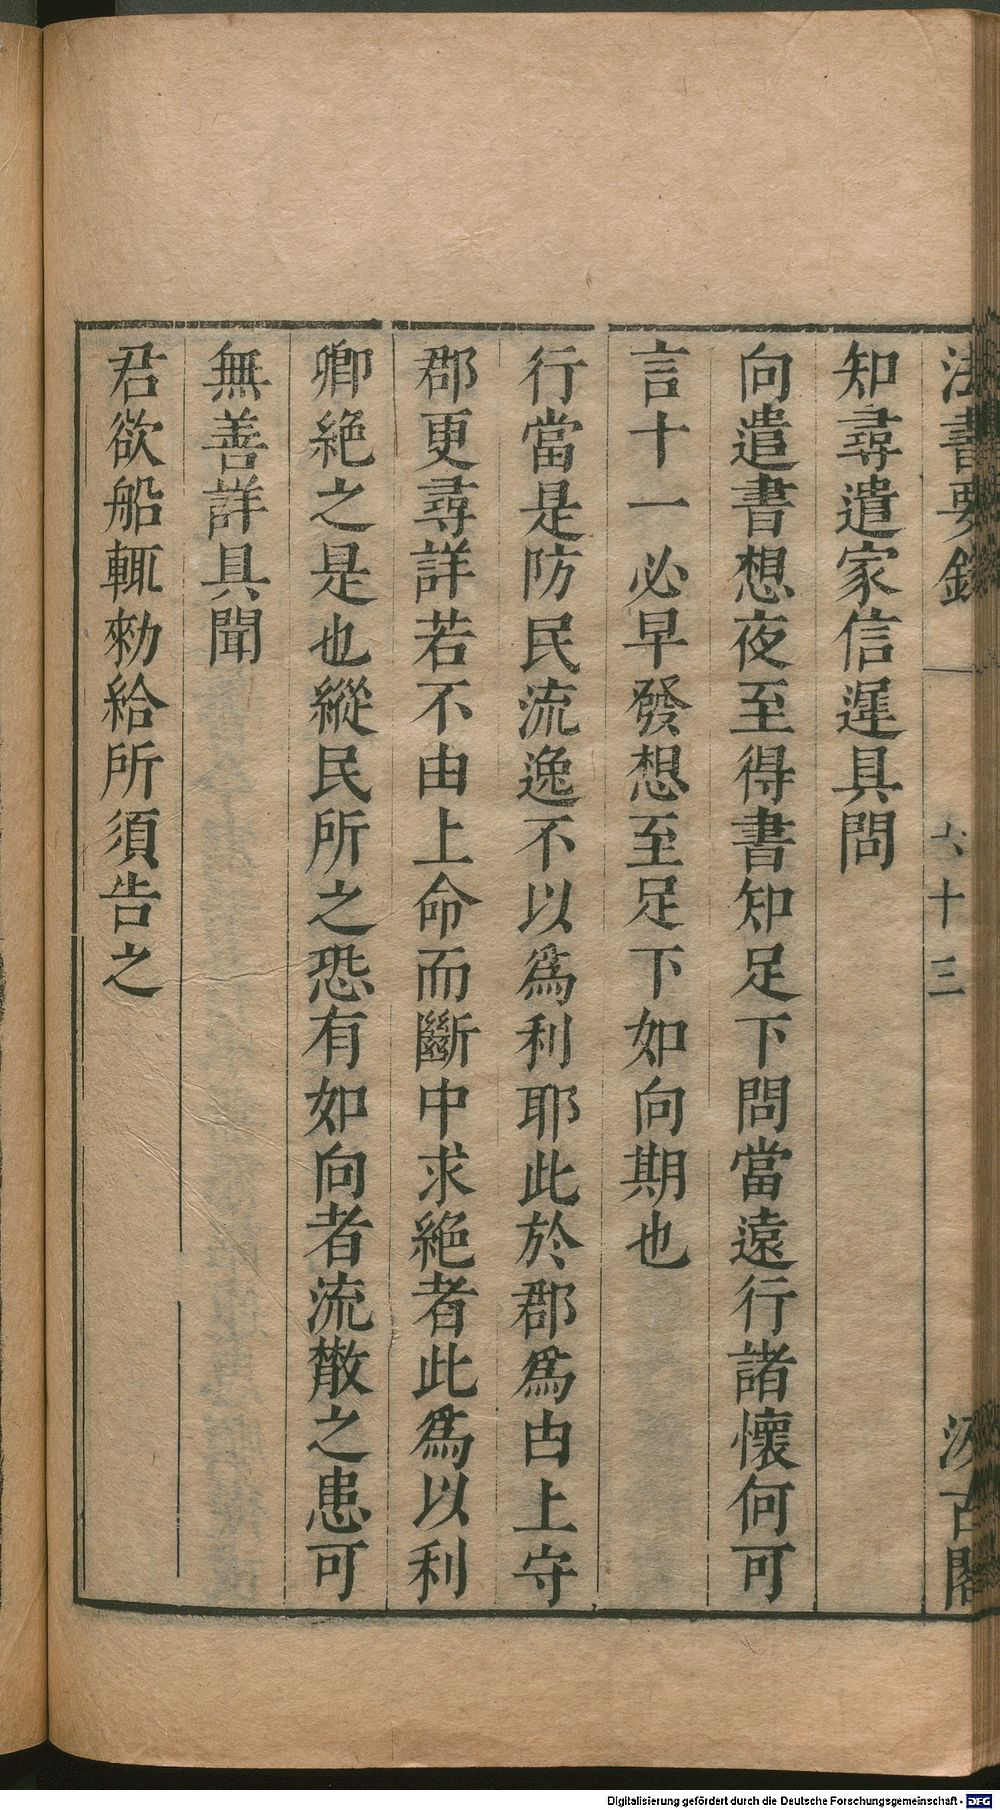 法書要錄
十三
汲古閣
知尋遣家信遲具問
向遣書想夜至得書知足下問當遠行諸懷何可
言十一必早發想至足下如向期也
行當是防民流逸不以爲利耶此於郡爲由上守
郡更尋詳若不由上命而斷中求絕者此爲以利
卿絕之是也縱民所之恐有如向者流散之患可
無善詳具聞
君欲船輒勑給所須告之
Digitalisierung gefördert durch die Deutsche Forschungsgemeinschaft - DFG